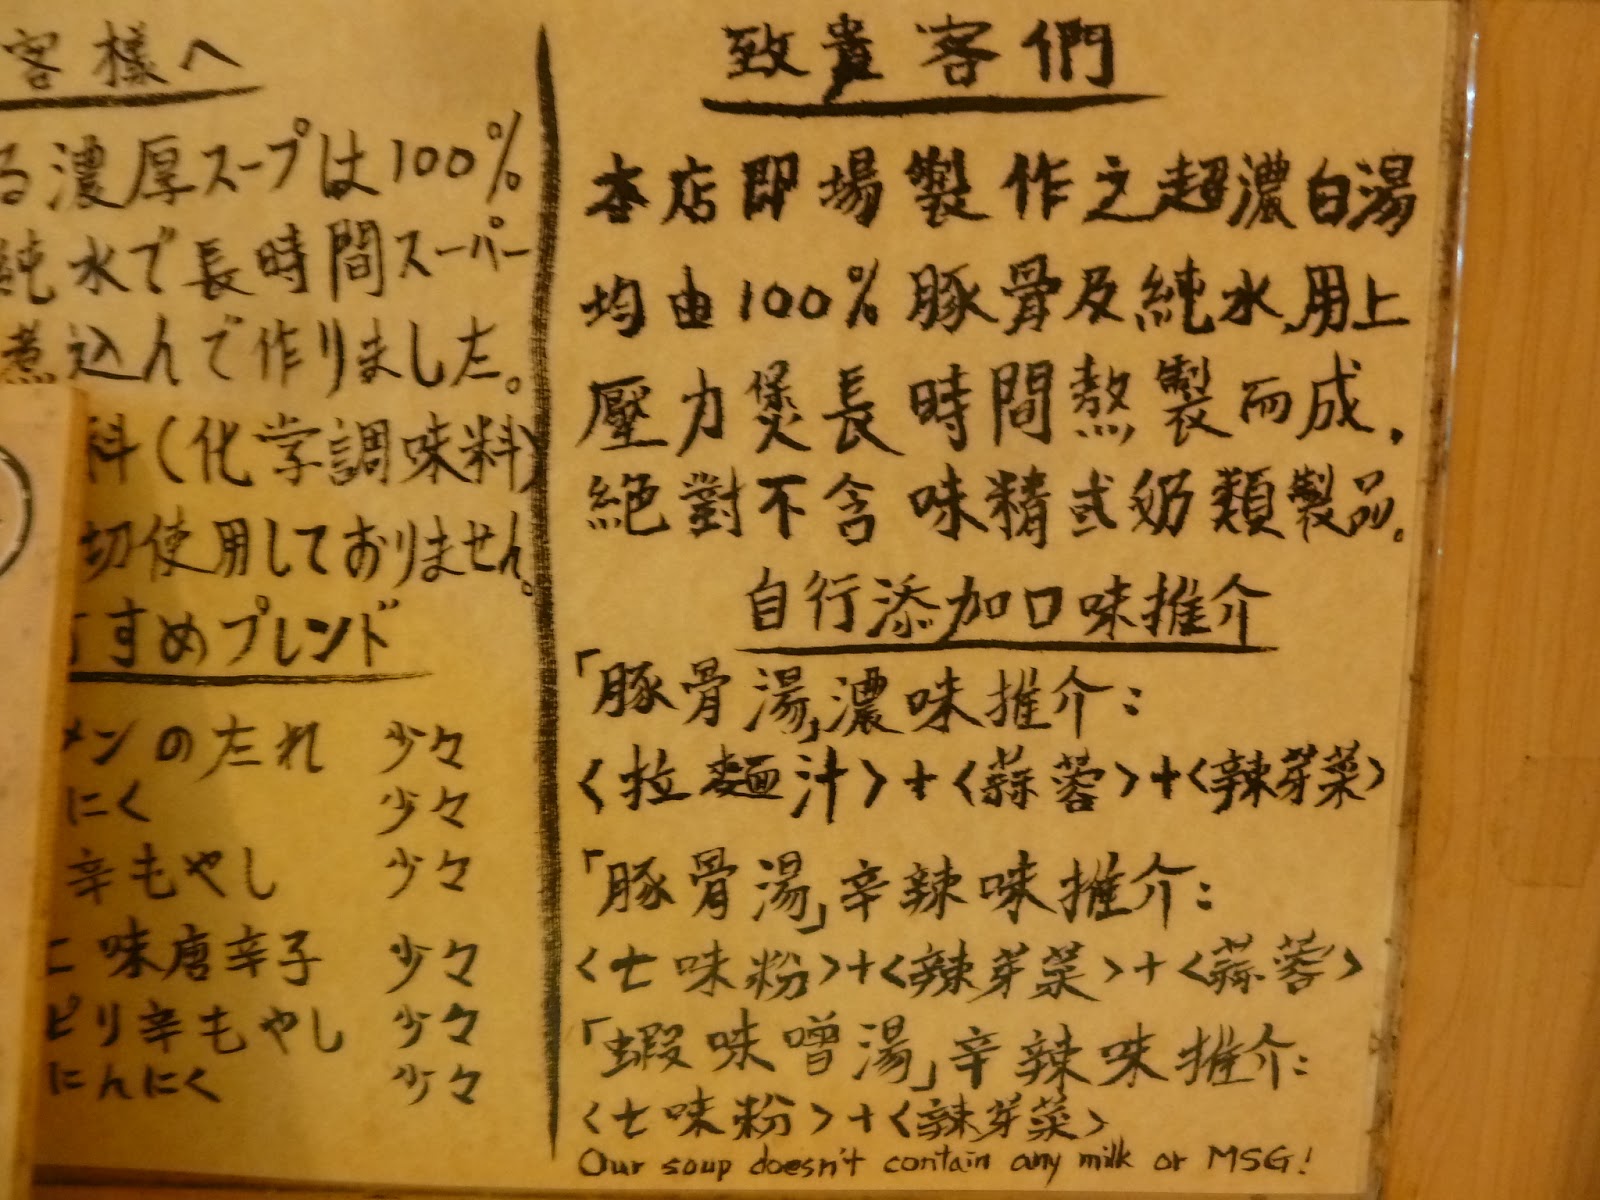 客様へ
る濃厚スープは100%
純水で長時間スーパー
煮込んで作りました。
料(化学調味料)
切使用しておりません。
すすめブレンド
メンのたれ 少々
にく 少々
辛もやし 少々
味唐辛子 少々
ピリ辛もやし 少々
にんにく 少々
致貴客們
本店即場製作之超濃白湯
均由100%豚骨及純水,用上
壓力煲長時間熬製而成,
絕對不含味精或奶類製品。
自行添加口味推介
「豚骨湯」濃味推介:
〈拉麵汁〉+〈蒜蓉〉+〈辣芽菜〉
「豚骨湯」辛辣味推介:
〈七味粉〉+〈辣芽菜〉+〈蒜蓉〉
「蝦味噌湯」辛辣味推介:
〈七味粉〉+〈辣芽菜〉
Our soup doesn't contain any milk or MSG!